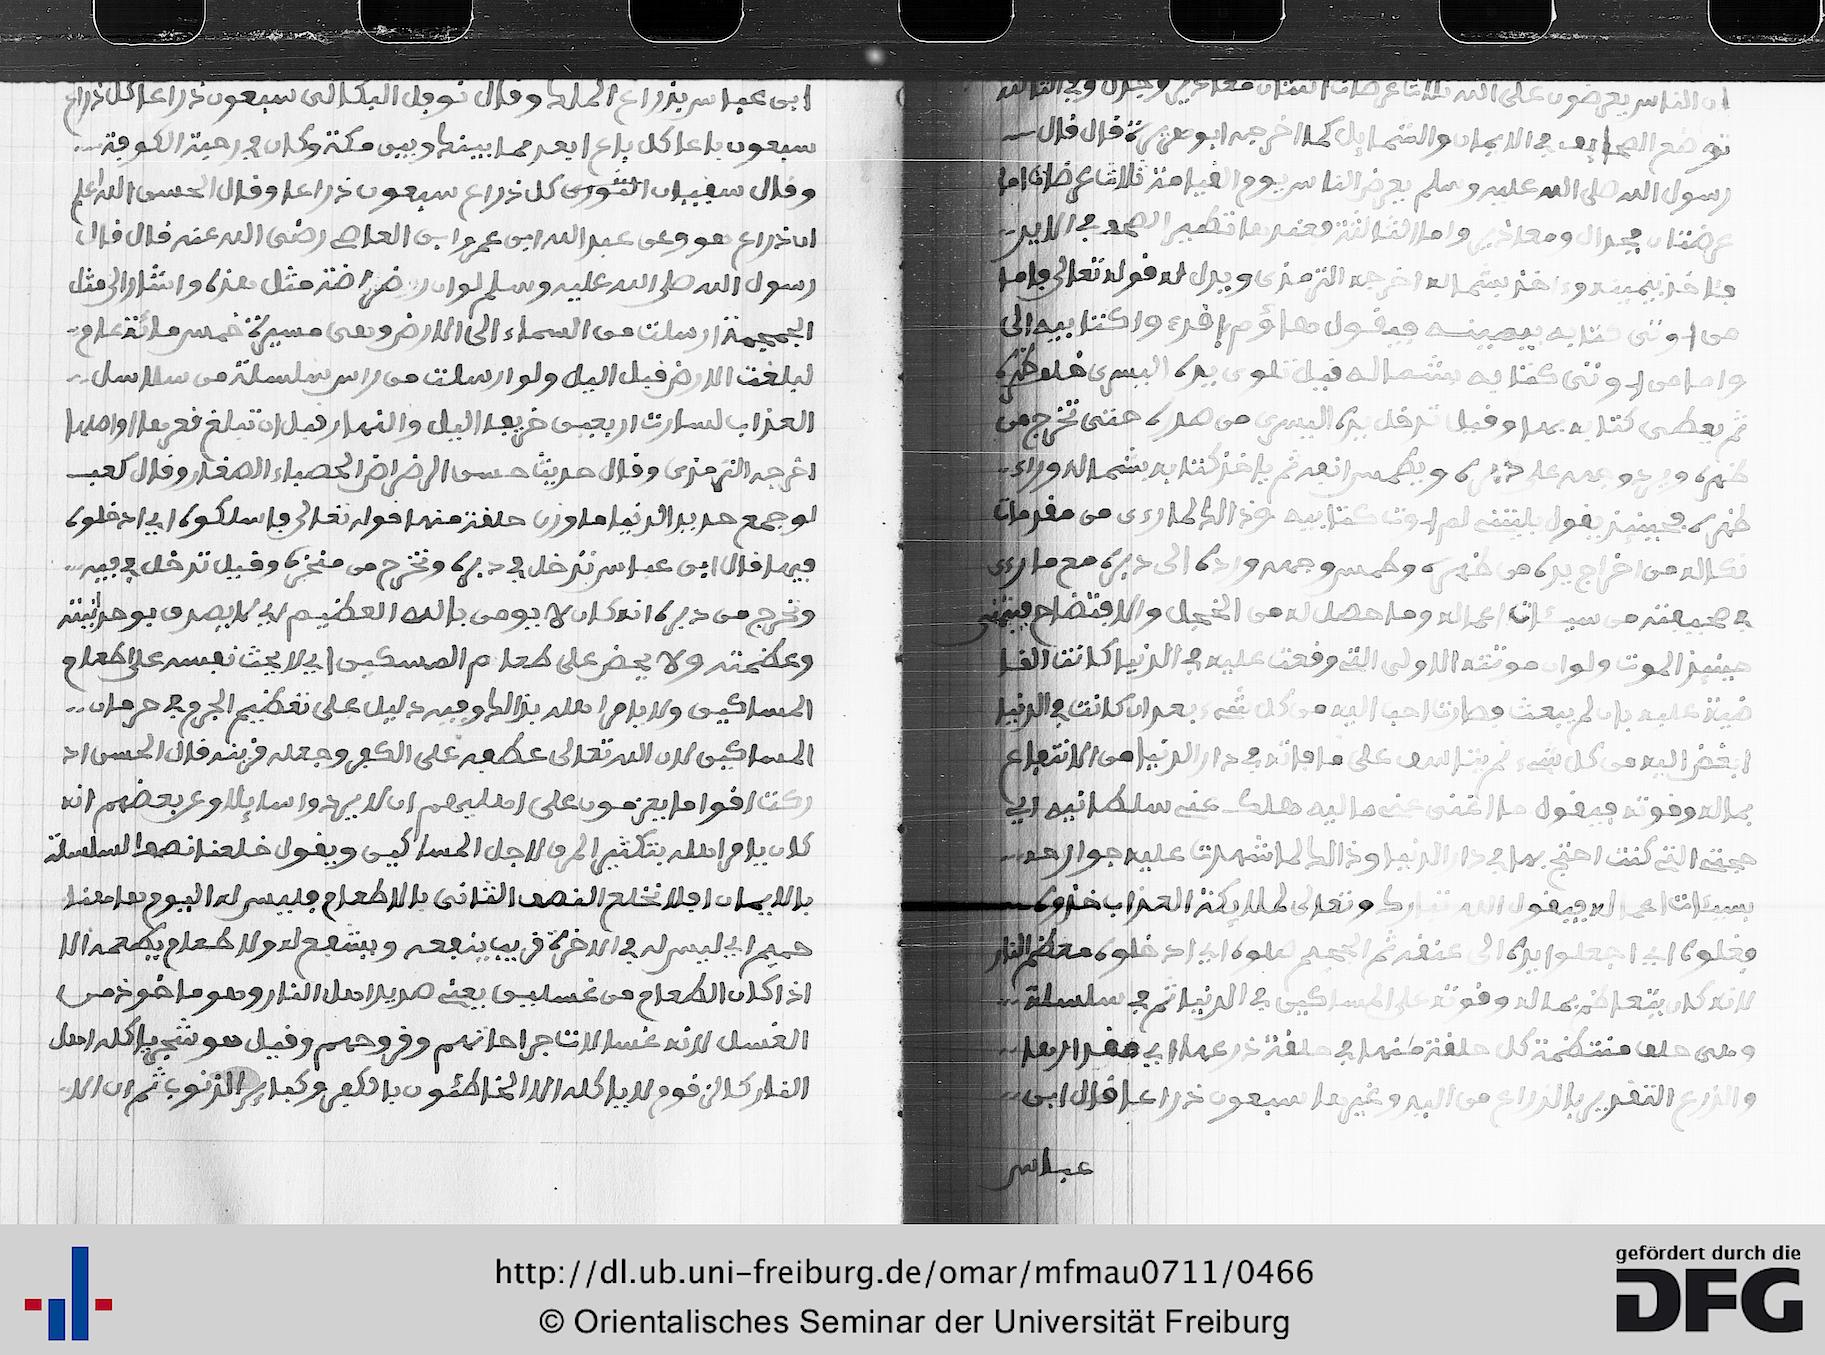 ان الناس يعرضون على الله ثلاثا عرضات اثنتان معاذير وجدال وفي الثالثة
توضع الصحايف في الايمان والشمايل كما اخرجه ابو هريرة قال قال
رسول الله صلى الله عليه وسلم يعرض الناس يوم القيامة ثلاثا عرضات اما
عرضتان فجدال ومعاذير واما الثالثة فعندها تطير الصحف في الايد
فاخذ بيمينه وءاخذ بشماله اخرجه الترمذي ويدل له قوله تعالى فاما
من اوتي كتابه بيمينه فيقول هاؤم اقرءوا كتابيه الى
واما من اوتي كتابه بشماله قيل تلوى يده اليسرى خلف ظهره
ثم يعطى كتابه بها وقيل تدخل يده اليسرى من صدره حتى تخرج من
ظهره وجهه على ويطمس انفه ثم ياخذ كتابه بشماله وراء
ظهره فحينيذ يقول يليتني لم اوت كتابيه وذالك لما رءى من مقدمات
نكاله من اخراج يده من ظهره وطمس وجهه ورده الى دبره مع ما رءى
في صحيفته من سيئات اعماله وما حصل له من الخجل والافتضاح
حينيذ الموت ولو ان موتته الاولى التي وقعت عليه في الدنيا كانت القا
ضية عليه بان لم يبعث فصارت احب اليه من كل شيء بعد ان كانت في الدنيا
ابغض اليه من كل شيء ثم يتاسف على ما فاته في دار الدنيا من الانتفاع
بماله وقوته فيقول ما اغنى عني ماليه هلك عني سلطانيه اي
حجتي التي كنت احتج بها في دار الدنيا وذالك لما شهدت عليه جوارحه
بسيئات اعماله فيقول الله تبارك وتعالى لملايكة العذاب خذوه
فغلوه اي اجعلوا يده الى عنقه ثم الجحيم صلوه اي ادخلوه معظم النار
لانه كان يتعاظم بماله وقوته على المساكين في الدنيا ثم في سلسلة
وهي حلق منتظمة كل حلقة منها في حلقة ذرعها اي مقدارها
والذرع التقدير بالذراع من اليد وغيرها سبعون ذراعا قال ابن
عباس
ابن عباس بذراع الملك وقال نوفل البكالى سبعون ذراعا كل ذراع
سبعون باعا كل باع ابعد مما بينك وبين مكة وكان في رحبة الكوفة
وقال سفيان الثوري كل ذراع سبعون ذراعا وقال الحسن الله اعلم
اى ذراع هو وعن عبد الله ابن عمرو ابن العاصي رضي الله عنه قال قال
رسول الله صلى الله عليه وسلم لو ان رضراضة مثل هذه واشار الى مثل
الجمجمة ارسلت من السماء الى الارض وهى مسيرة خمس مائة عام
لبلغت الارض قبل اليل ولو ارسلت من راس سلسلة من سلاسل
العذاب لسارت اربعين خريفا اليل والنهار قبل ان تبلغ قعرها او اصلها
اخرجه الترمذي وقال حديث حسن الرضراض الحصباء الصغار وقال كعب
لو جمع حديد الدنيا ما وزن حلقة منها قوله تعالى فاسلكوه اي ادخلوه
فيها قال ابن عباس تدخل في دبره وتخرج من منخره وقيل تدخل في فيه
وتخرج من دبره انه كان لا يومن بالله العظيم اي لا يصدق بوحدانيته
وعظمته ولا يحض على طعام المسكين اي لا يحث نفسه على اطعام
المساكين ولا يامر اهله بذالك وفيه دليل على تعظيم الجرم في حرمان
المساكين لان الله تعالى عطفه على الكفر وجعله قرينه قال الحسن اد
ركت اقواما يعزمون على اهليهم ان لا يردوا سايلا وعن بعضهم انه
كان يامر اهله بتكثير المرق لاجل المساكين ويقول خلعنا نصف السلسلة
بالايمان افلا نخلع النصف الثاني بالاطعام فليس له اليوم هاهنا
حميم اي ليس له في الاخرة قريب ينفعه ويشفع له ولا طعام يطعمه الا
اذا كان الطعام من غسلين يعني صديد اهل النار وهو ماخوذ من
الغسل لانه غسالات جراحاتهم وقروحهم وقيل هو شجر ياكله اهل
النار كالزقوم لا ياكله الا الخاطئون بالكفر وكباير الذنوب ثم ان الا
http://dl.ub.uni-freiburg.de/omar/mfmau0711/0466
© Orientalisches Seminar der Universität Freiburg
gefördert durch die
DFG